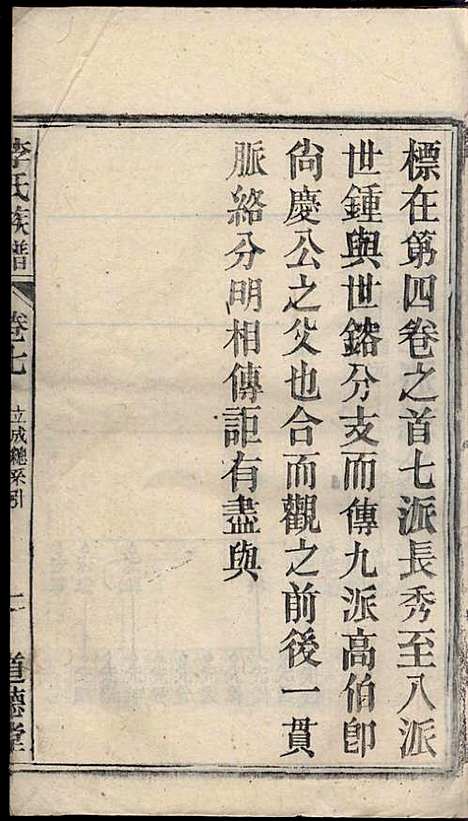 標在第四卷之首七派長秀至八派
世鍾與世鎔分支而傳九派高伯即
尙慶公之父也合而觀之前後一貫
脈絡分明相傳詎有盡與
李氏族譜
卷七
立成總系引
一
道德堂